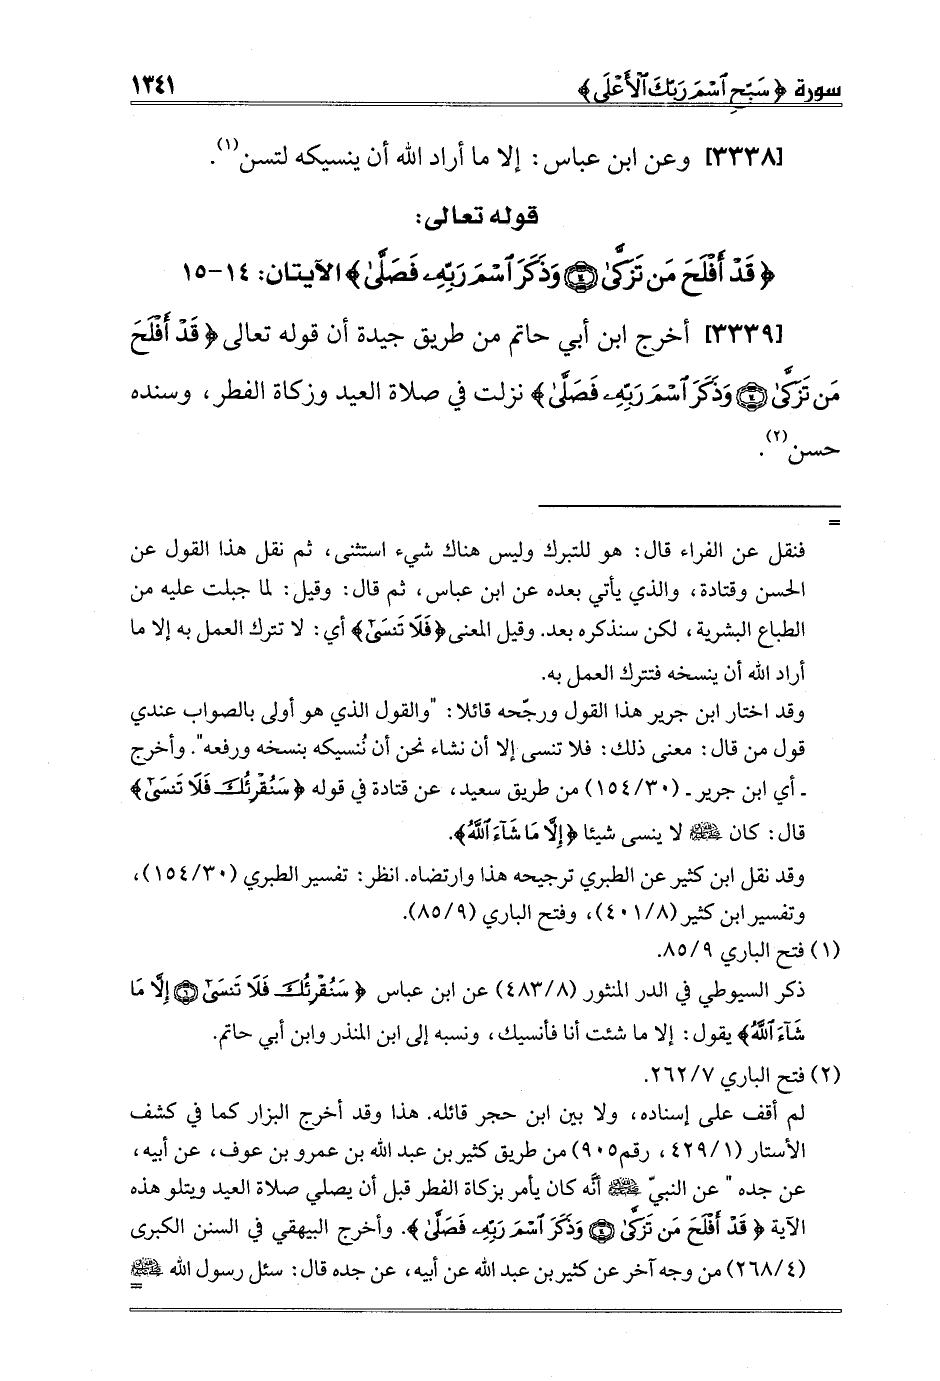 سورة ﴿سَبِّحِ ٱسْمَ رَبِّكَ ٱلْأَعْلَى﴾ ١٣٤١
[٣٣٣٨] وعن ابن عباس: إلا ما أراد الله أن ينسيكه لتسن(١).
قوله تعالى:
﴿قَدْ أَفْلَحَ مَن تَزَكَّىٰ ۝١٤ وَذَكَرَ ٱسْمَ رَبِّهِۦ فَصَلَّىٰ﴾ الآيتان: ١٤-١٥
[٣٣٣٩] أخرج ابن أبي حاتم من طريق جيدة أن قوله تعالى ﴿قَدْ أَفْلَحَ
مَن تَزَكَّىٰ ۝١٤ وَذَكَرَ ٱسْمَ رَبِّهِۦ فَصَلَّىٰ﴾ نزلت في صلاة العيد وزكاة الفطر، وسنده
حسن(٢).
=
فنقل عن الفراء قال: هو للتبرك وليس هناك شيء استثنى، ثم نقل هذا القول عن
الحسن وقتادة، والذي يأتي بعده عن ابن عباس، ثم قال: وقيل: لما جبلت عليه من
الطباع البشرية، لكن سنذكره بعد. وقيل المعنى ﴿فَلَا تَنسَىٰٓ﴾ أي: لا تترك العمل به إلا ما
أراد الله أن ينسخه فتترك العمل به.
وقد اختار ابن جرير هذا القول ورجّحه قائلا: "والقول الذي هو أولى بالصواب عندي
قول من قال: معنى ذلك: فلا تنسى إلا أن نشاء نحن أن نُنسيكه بنسخه ورفعه". وأخرج
ـ أي ابن جرير ـ (١٥٤/٣٠) من طريق سعيد، عن قتادة في قوله ﴿سَنُقْرِئُكَ فَلَا تَنسَىٰٓ﴾
قال: كان ﷺ لا ينسى شيئا ﴿إِلَّا مَا شَآءَ ٱللَّهُ﴾.
وقد نقل ابن كثير عن الطبري ترجيحه هذا وارتضاه. انظر: تفسير الطبري (١٥٤/٣٠)،
وتفسير ابن كثير (٤٠١/٨)، وفتح الباري (٨٥/٩).
(١) فتح الباري ٨٥/٩.
ذكر السيوطي في الدر المنثور (٤٨٣/٨) عن ابن عباس ﴿سَنُقْرِئُكَ فَلَا تَنسَىٰٓ ۝٦ إِلَّا مَا
شَآءَ ٱللَّهُ﴾ يقول: إلا ما شئت أنا فأنسيك، ونسبه إلى ابن المنذر وابن أبي حاتم.
(٢) فتح الباري ٢٦٢/٧.
لم أقف على إسناده، ولا بين ابن حجر قائله. هذا وقد أخرج البزار كما في كشف
الأستار (٤٢٩/١، رقم٩٠٥) من طريق كثير بن عبد الله بن عمرو بن عوف، عن أبيه،
عن جده " عن النبيّ ﷺ أنّه كان يأمر بزكاة الفطر قبل أن يصلي صلاة العيد ويتلو هذه
الآية ﴿قَدْ أَفْلَحَ مَن تَزَكَّىٰ ۝١٤ وَذَكَرَ ٱسْمَ رَبِّهِۦ فَصَلَّىٰ﴾. وأخرج البيهقي في السنن الكبرى
(٢٦٨/٤) من وجه آخر عن كثير بن عبد الله عن أبيه، عن جده قال: سئل رسول الله ﷺ
=